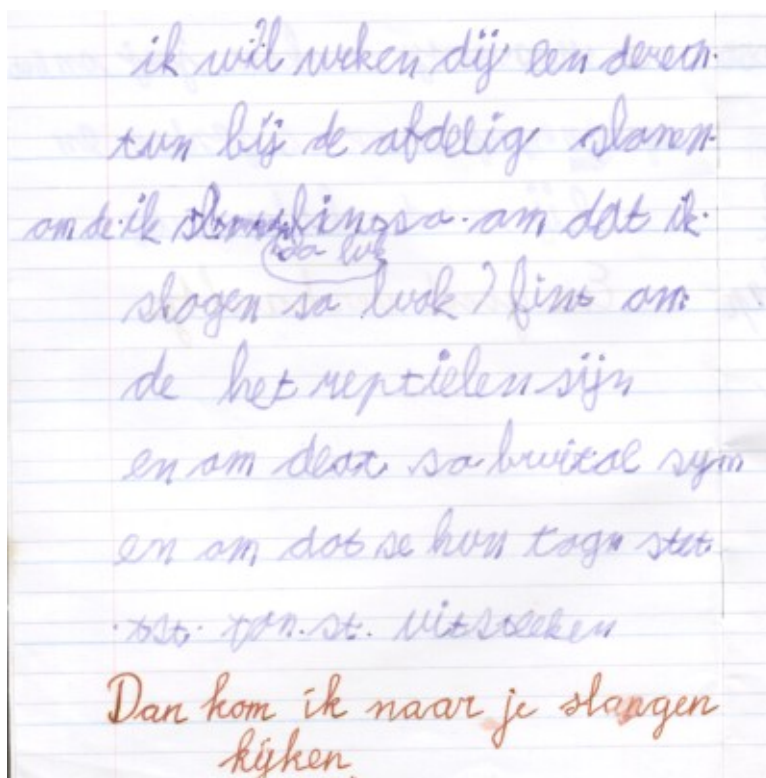 ik wil wrken dij een dereen.
tun bij de afdelig slanen.
om de ik so. om dat ik.
so luk
slagen so luok ? fint om
de het reptielen sijn
en om deat so brutal syn
en om dat se hun togn stet.
tst. st. uitsteeken
Dan kom ik naar je slangen
kijken.